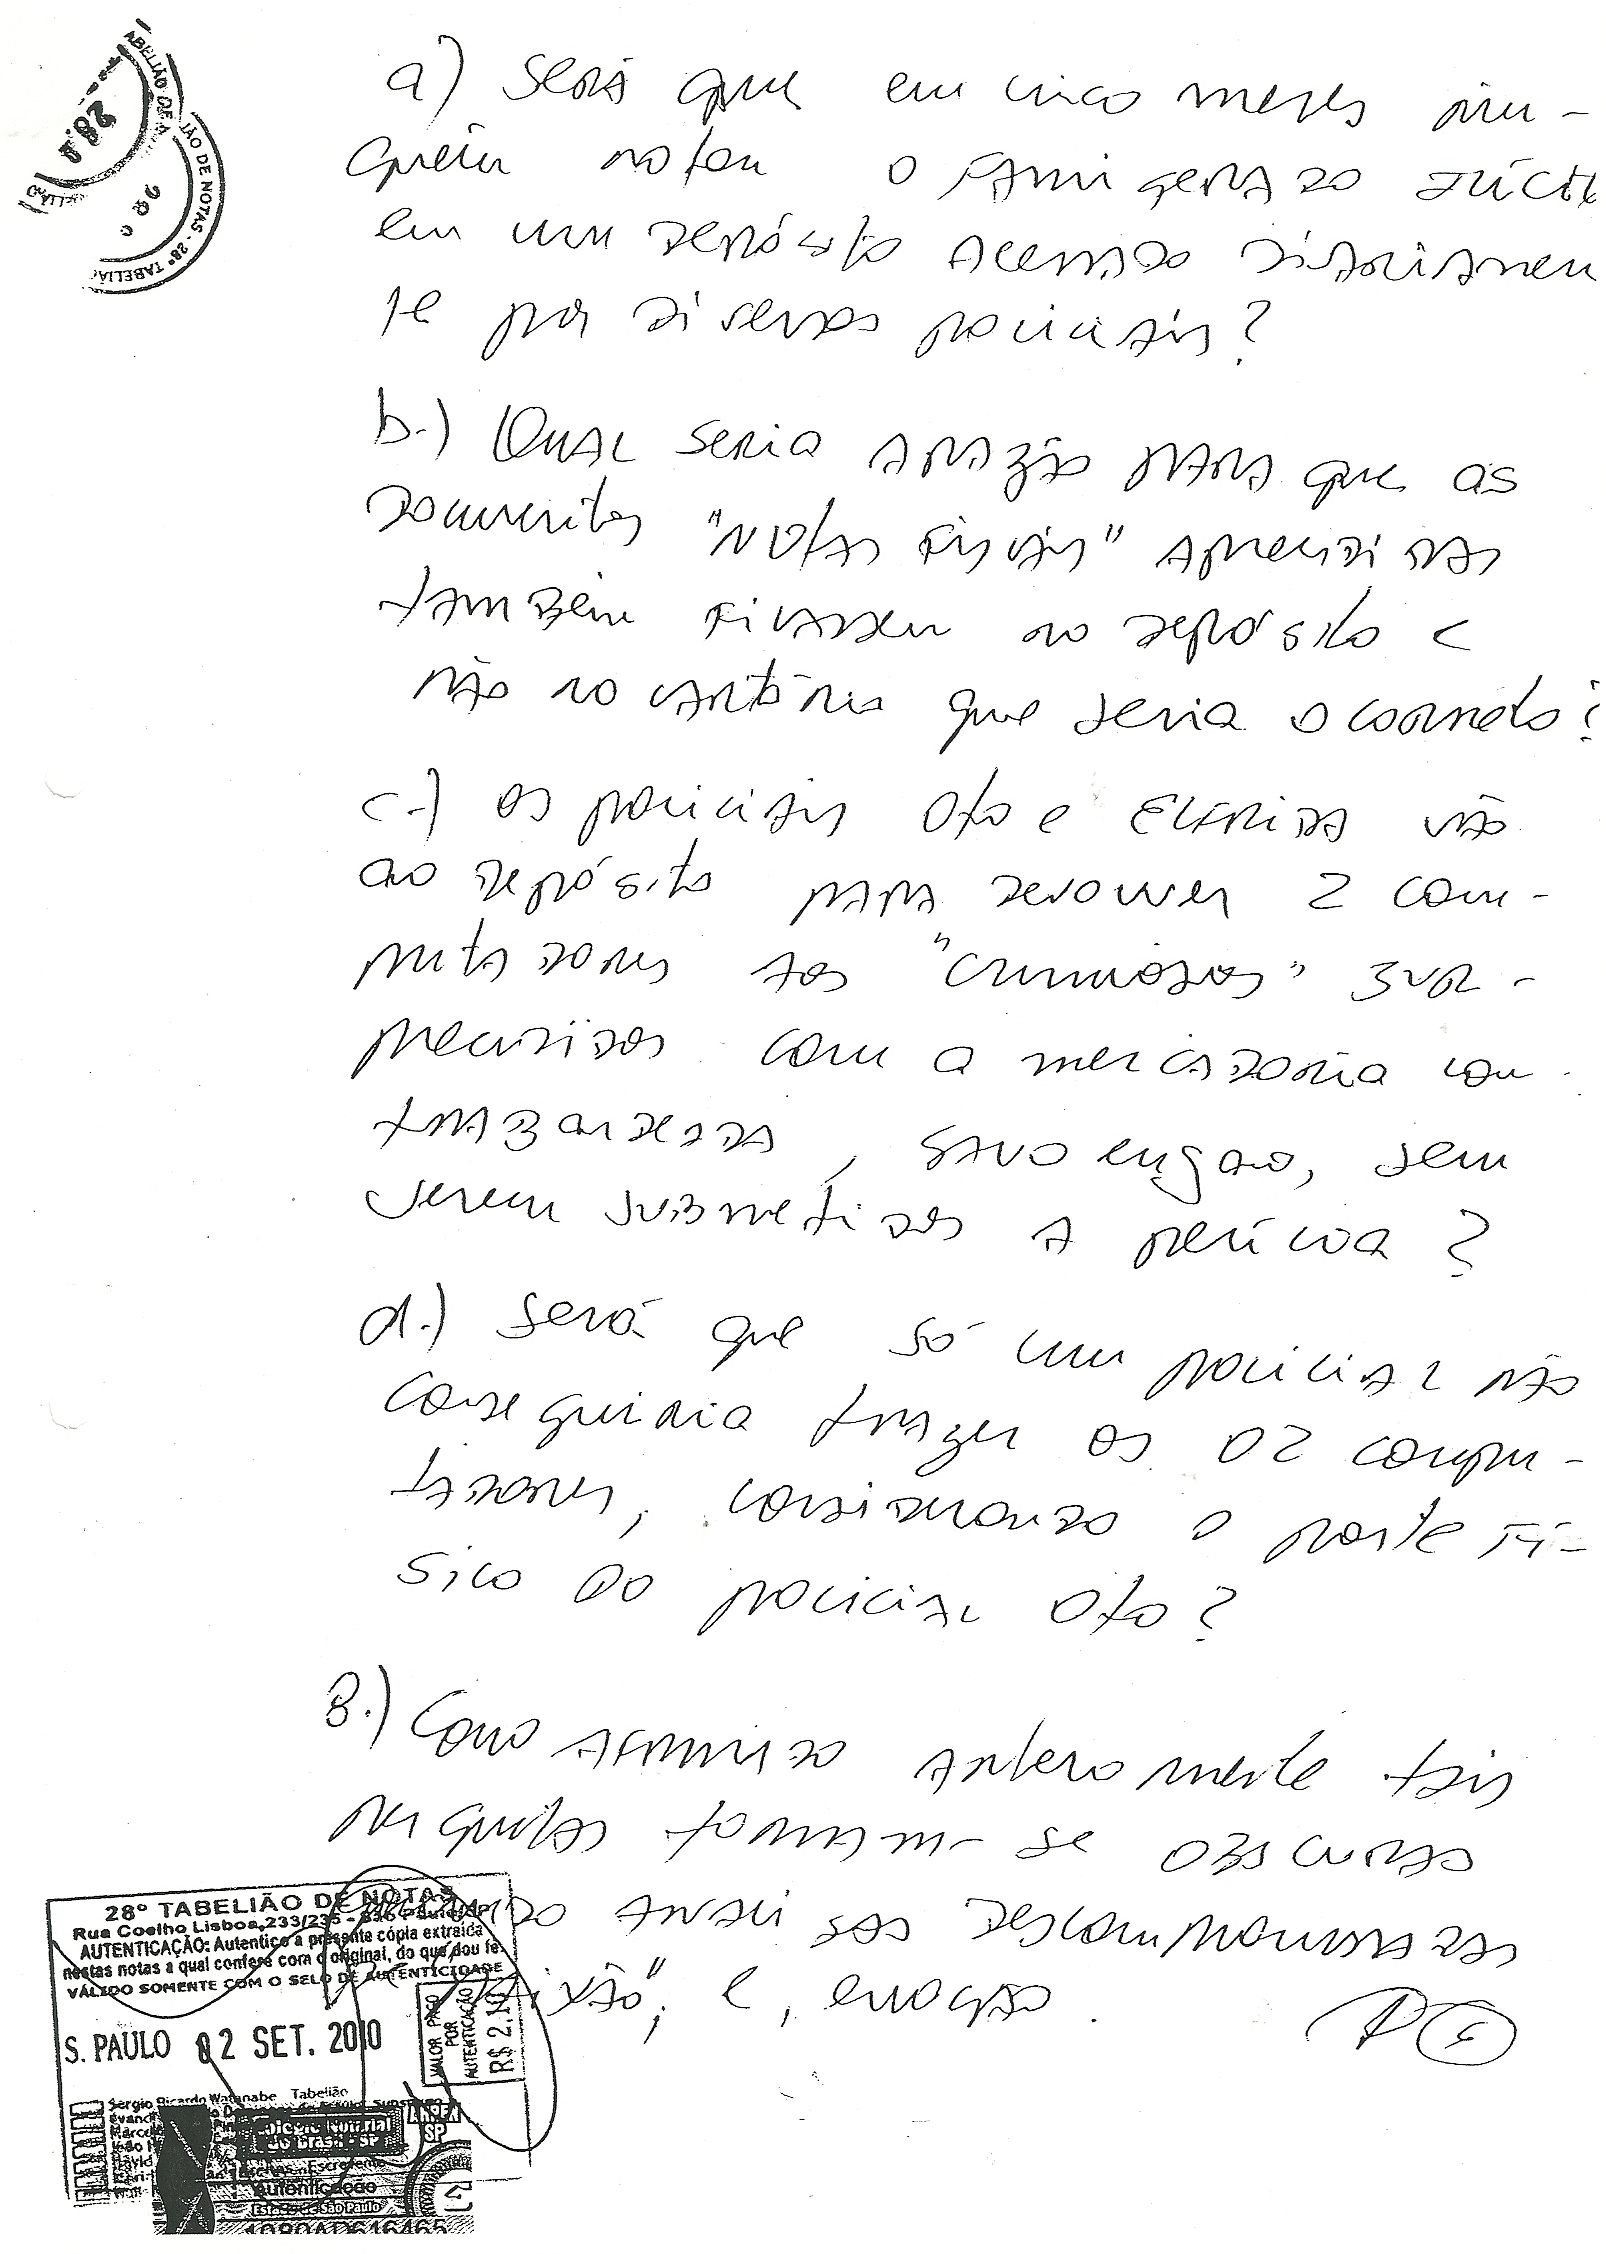 a) Será que em cinco meses nin-
guém notou o famigerado túnel
em um depósito acessado diariamen
te por diversos policiais?
b.) Qual seria a razão para que os
documentos "notas fiscais" apreendidas
também ficassem no depósito e
não no cartório que seria o correto?
c.) Os policiais Oto e Elfrida vão
ao depósito para devolver 2 com-
putadores aos "criminosos" sur-
preendidos com a mercadoria con
trabandeada, savo engano, sem
serem submetidos a perícia?
d.) Será que só um policial não
conseguiria trazer os 02 compu-
tadores, considerando o porte fí-
sico do policial Oto?
8.) Como afirmado anteromente tais
perguntas tornam-se obscuras
quando analisadas descompromissadas
paixão", e, emoção.
28º TABELIÃO DE NOTAS
Rua Coelho Lisboa,233/235 - São Paulo/SP
AUTENTICAÇÃO: Autentico a presente cópia extraída
nestas notas a qual confere com o original, do que dou fé.
VÁLIDO SOMENTE COM O SELO DE AUTENTICIDADE
S. PAULO 02 SET. 2010
VALOR PAGO
POR
AUTENTICAÇÃO
R$ 2,10
Sergio Ricardo Watanabe Tabelião
Colégio Notarial
do Brasil - SP
ANOREG
SP
Escrevente
Autenticação
Estado de São Paulo
1080AD616465
28º
TABELIÃO DE NOTAS - 28º TABELIÃ